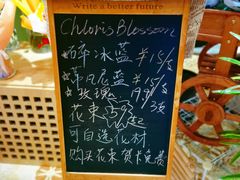 Write a better future
Chloris Blossom
碎冰蓝 ¥15/支
平凡蓝 ¥15/支
玫瑰 19.9/3支
花束 59起
可自选花材
购买花束 贺卡免费